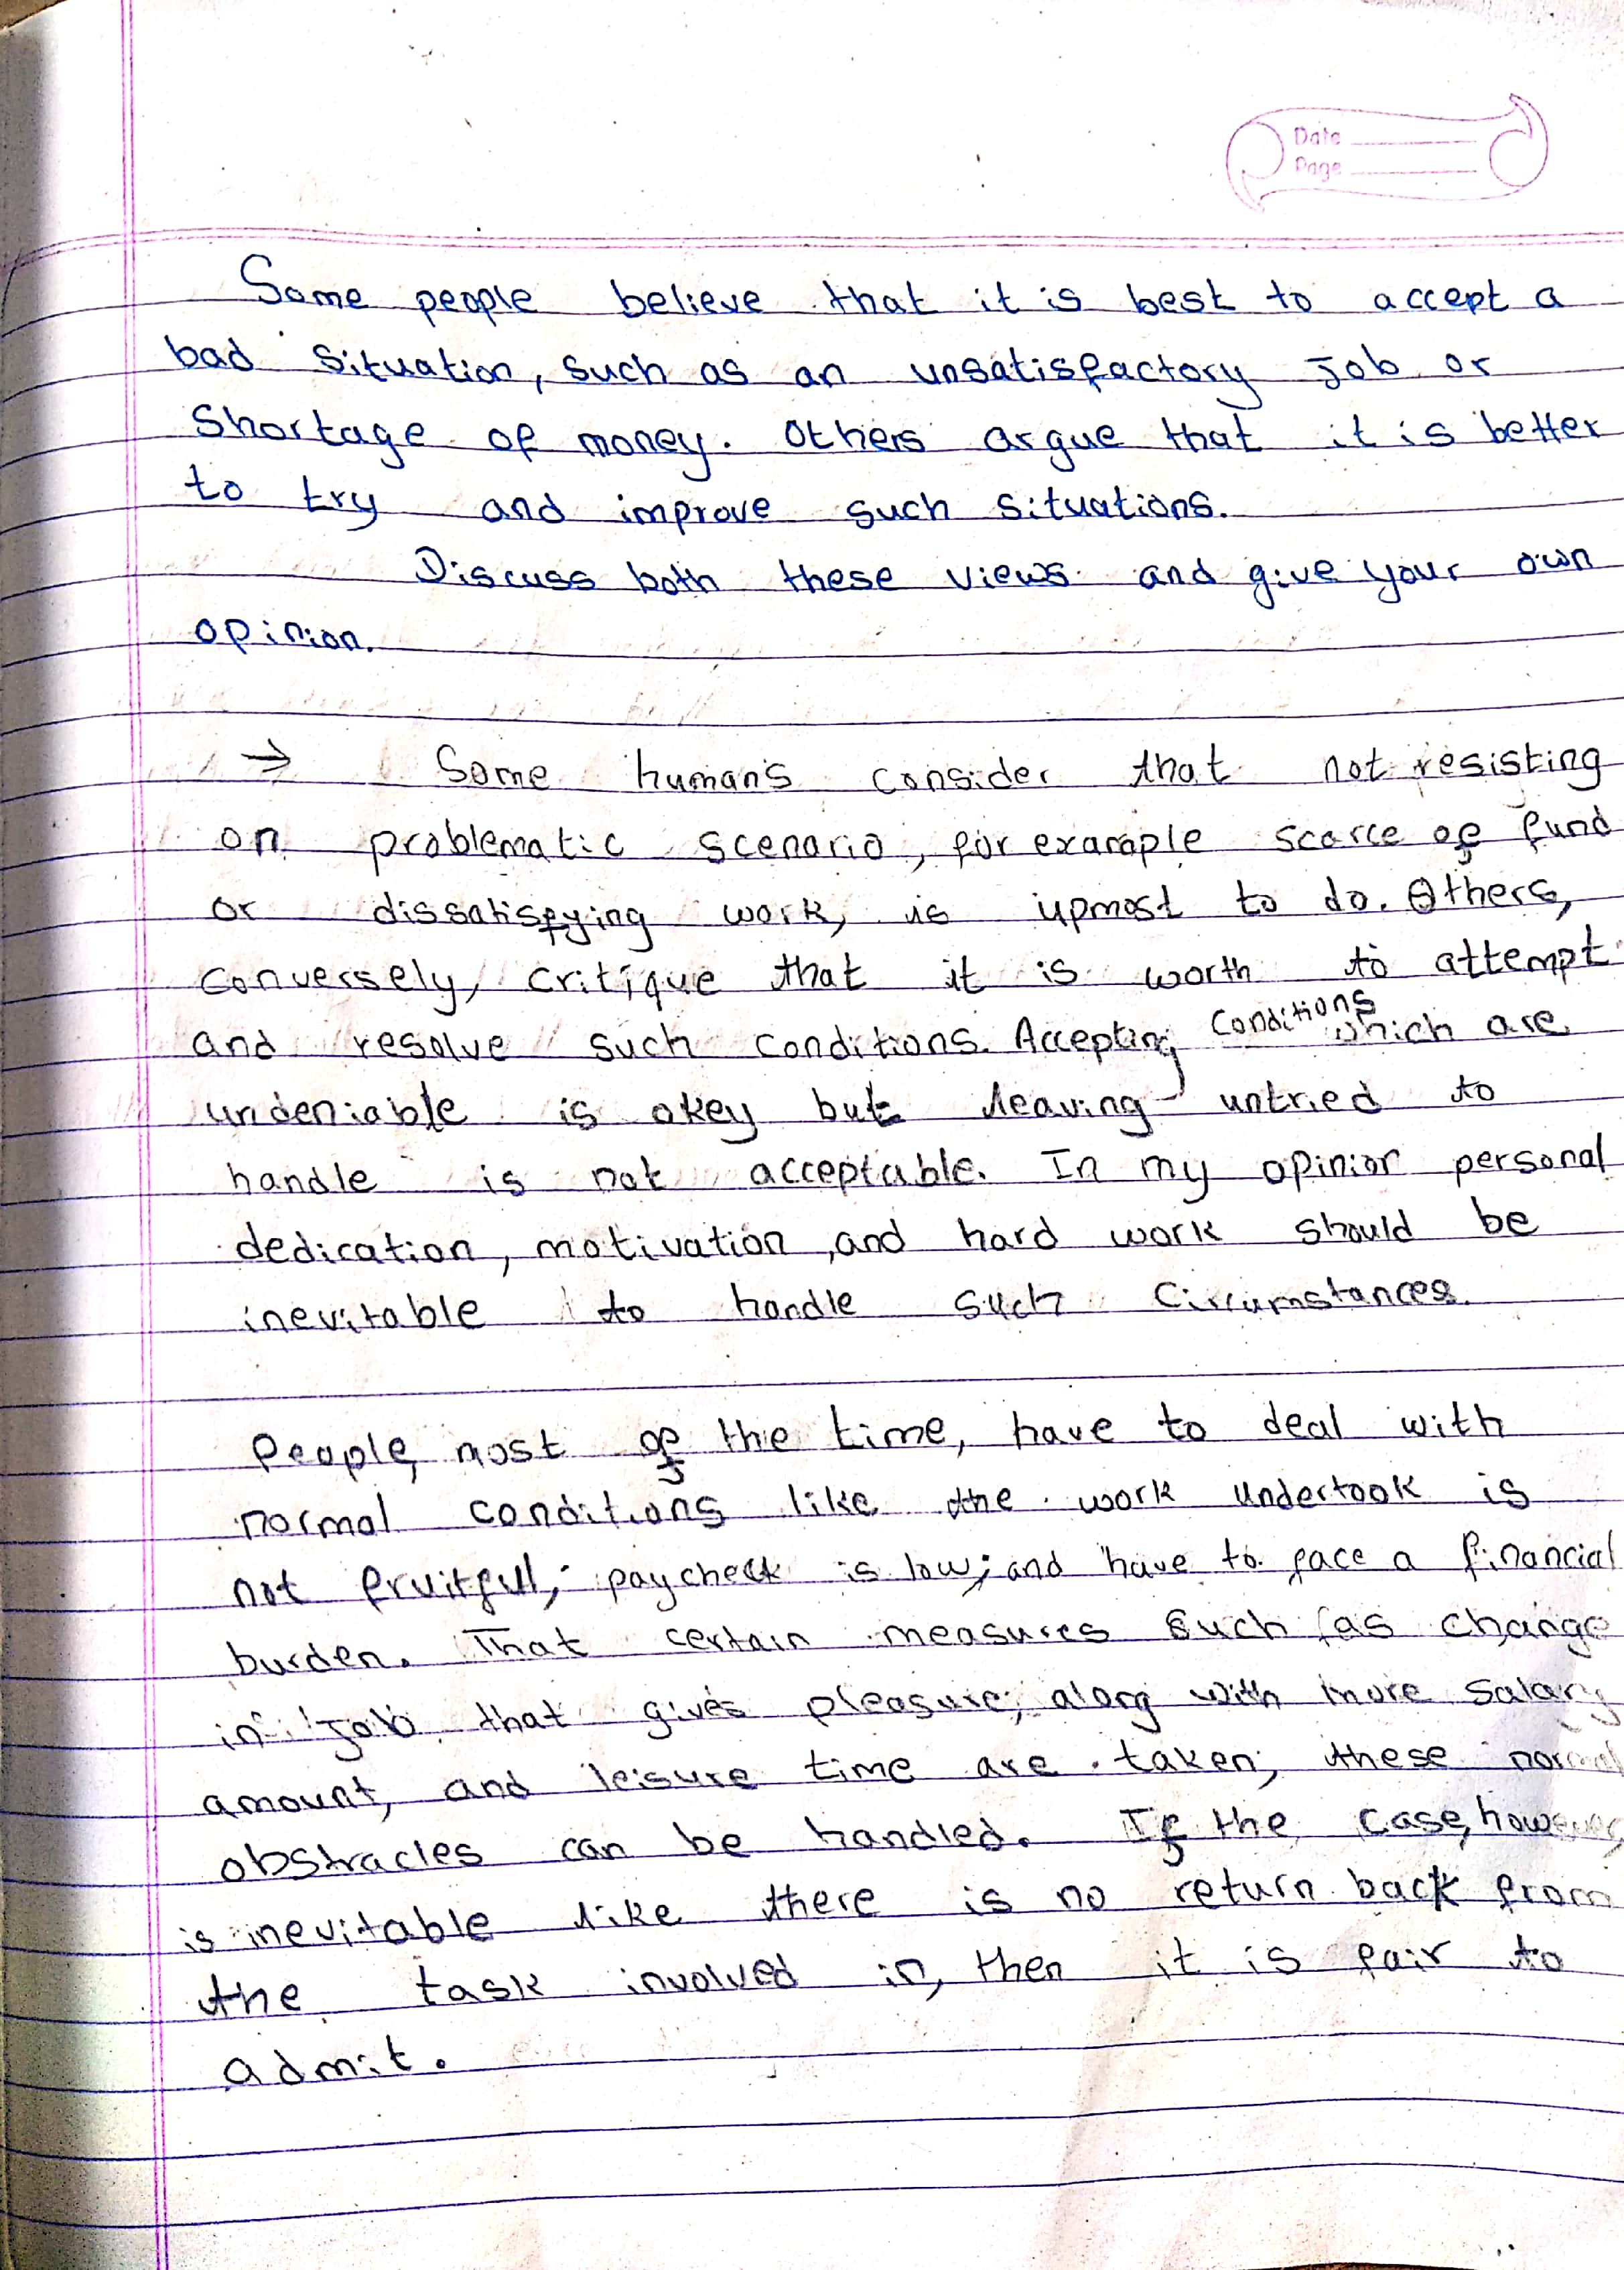 Date
Page
Some people believe that it is best to accept a
bad situation, such as an unsatisfactory job or
Shortage of money. Others argue that it is better
to try and improve such situations.
Discuss both these views and give your own
opinion.
→ Some humans consider that not resisting
on problematic scenario, for example scarce of fund
or dissatisfying work, is upmost to do. Others,
conversely, critique that it is worth to attempt
and resolve such conditions. Accepting conditions which are
undeniable is okey but leaving untried to
handle is not acceptable. In my opinion personal
dedication, motivation, and hard work should be
inevitable to handle such circumstances.
People, most of the time, have to deal with
normal conditions like the work undertook is
not fruitful; paycheck is low; and have to face a financial
burden. That certain measures such as change
in job that gives pleasure, along with more salary
amount, and leisure time are taken, these normal
obstracles can be handled. If the case, however,
is inevitable like there is no return back from
the task involved in, then it is fair to
admit.